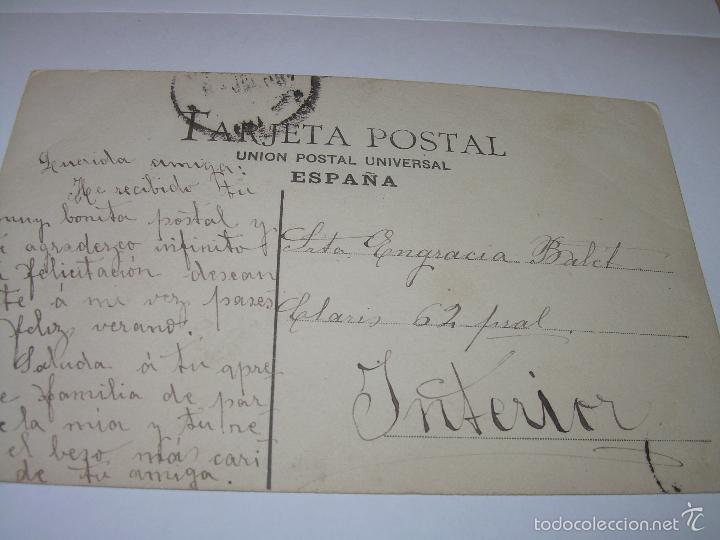 TARJETA POSTAL
UNION POSTAL UNIVERSAL
ESPAÑA
Querida amiga:
He recibido tu
muy bonita postal y
é agradezco infinito
felicitación desean
te á mi vez pases
feliz verano.
Saluda á tu apre
familia de par
e la mia y tu re
el bezo más cari
de tu amiga.
Srta Engracia Balet
Claris 62 pral.
Interior
todocoleccion.net